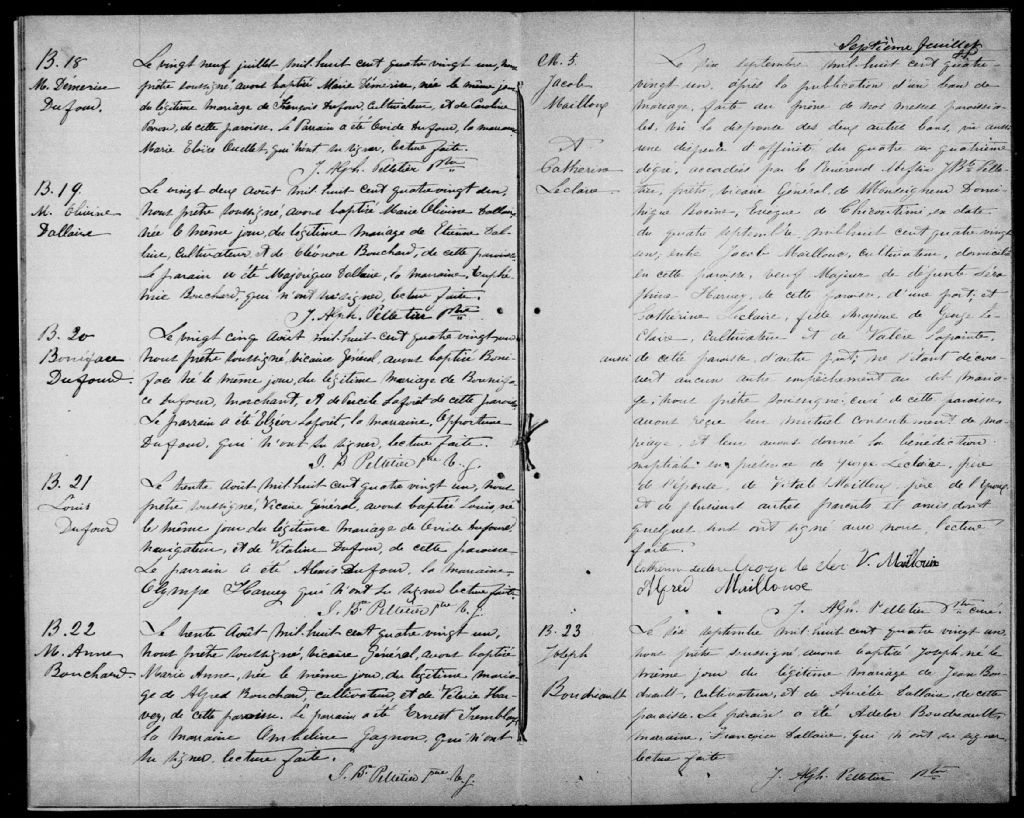 B. 18
M. Démerise
Dufour.
Le vingt neuf juillet mil huit cent quatre vingt un, nous
prêtre soussigné, avons baptisé Marie Démerise, née le même jour
de légitime mariage de François Dufour, cultivateur, et de Caroline
Perron, de cette paroisse. Le Parrain a été Ovide Dufour, la marraine
Marie Eloïse Ouellet, qui n'ont su signer, lecture faite.
J. Alph. Pelletier Ptre
B. 19.
M. Elivine
Dallaire
Le vingt deux Août mil huit cent quatre vingt un,
nous prêtre soussigné, avons baptisé Marie Olivine Dallaire
née le même jour, du légitime mariage de Etienne Dal-
laire, cultivateur, et de Eléonore Bouchard, de cette paroisse
Le parain a été Majorique Dallaire, la maraine, Euphé-
mie Bouchard, qui n'ont su signer, lecture faite.
J. Alph. Pelletier Ptre
B. 20
Boniface
Dufourd.
Le vingt cinq Août mil huit cent quatre vingt un
nous prêtre soussigné, vicaire Général, avons baptisé Boni-
face né le même jour, du légitime mariage de Bounifa-
ce Dufour, marchant, et de Lucile Laforêt de cette paroisse
Le parrain a été Elzéor Laforêt, la maraine, Opportune
Dufour, qui n'ont su signer, lecture faite.
J. B Pelletier ptre V. g.
B. 21
Louis
Dufourd
Le trente Août mil huit cent quatre vingt un, nous
prêtre soussigné, Vicaire Général, avons baptisé Louis né
le même jour du légitime mariage de Ovide Dufour
navigateur, et de Vitaline Dufour, de cette paroisse
Le parrain a été Alexis Dufour, la maraine
Olympe Harvey qui n'ont su signer lecture faite.
J. Bte Pelletier ptre V. g.
B. 22
M. Anne
Bouchard.
Le trente Août mil huit cent quatre vingt un,
nous prêtre soussigné, vicaire Général, avons baptisé
Marie Anne, née le même jour, du légitime maria-
ge de Alfred Bouchard, cultivateur, et de Valérie Har-
vey, de cette paroisse. Le parrain a été Ernest Tremblay
la marraine Ombéline Gagnon, qui n'ont
su signer, lecture faite.
J. Bte Pelletier ptre V. g.
Septième feuillet
M. 5.
Jacob
Mailloux
&
Catherine
Leclaire
Le six septembre mil huit cent quatre-
vingt un, après la publication d'un ban de
mariage, faite au prône de nos messes paroissia-
les, vu la dispense des deux autres bans, vu aussi
une dispense d'affinité du quatre au quatrième
dégré, accordées par le Révérend Messire J Bte Pelle-
tier, prêtre, vicaire Général de Monseigneur Domi-
nique Racine, Evêque de Chicoutimi en date
du quatre septembre mil huit cent quatre vingt
un, entre Jacob Mailloux, cultivateur, domicilié
en cette paroisse, veuf Majeur de défunte Séra-
phine Harvey, de cette paroisse, d'une part; et
Catherine Leclaire, fille Majeure de George Le-
Claire, Cultivateur et de Valère Lapointe,
aussi de cette paroisse d'autre part; ne s'étant décou-
vert aucun autre empêchement au dit maria-
ge; nous prêtre soussigné, curé de cette paroisse,
avons reçu leur mutuel consentement de ma-
riage, et leur avons donné la bénédiction
nuptiale en présence de George Leclaire, père
de l'épouse, de Vital Mailloux, père de l'époux
et de plusieurs autres parents et amis dont
quelques uns ont signé avec nous, lecture
faite.
Catherine Leclere George le cler V. Mailloux
Alfred Mailloux
J. Alph. Pelletier Ptre curé.
B. 23
Joseph
Boudréault
Le six septembre mil huit cent quatre vingt un
nous prêtre soussigné avons baptisé Joseph, né le
même jour du légitime mariage de Jean Bou-
dréault, cultivateur, et de Aurélie Dallaire, de cette
paroisse. Le parain a été Adelor Boudréault,
maraine, Françoise Dallaire, qui n'ont su signer,
lecture faite
J. Alph. Pelletier Ptre